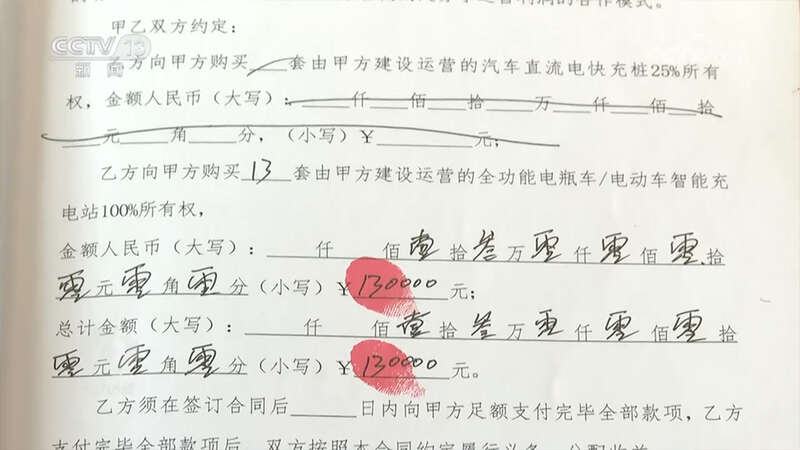 CCTV 13
新闻
的合作模式。
甲乙双方约定：
乙方向甲方购买 套由甲方建设运营的汽车直流电快充桩25%所有
权，金额人民币（大写）：____仟__佰__拾____万____仟__佰__拾
____元____角____分，（小写）¥________元；
乙方向甲方购买 13 套由甲方建设运营的全功能电瓶车/电动车智能充
电站100%所有权，
金额人民币（大写）：____仟____佰 壹 拾 叁 万 零 仟 零 佰 零 拾
零 元 零 角 零 分（小写）¥ 130000 元；
总计金额（大写）：____仟____佰 壹 拾 叁 万 零 仟 零 佰 零 拾
零 元 零 角 零 分（小写）¥ 130000 元。
乙方须在签订合同后____日内向甲方足额支付完毕全部款项，乙方
支付完毕全部款项后，双方按照本合同约定履行义务、分配收益